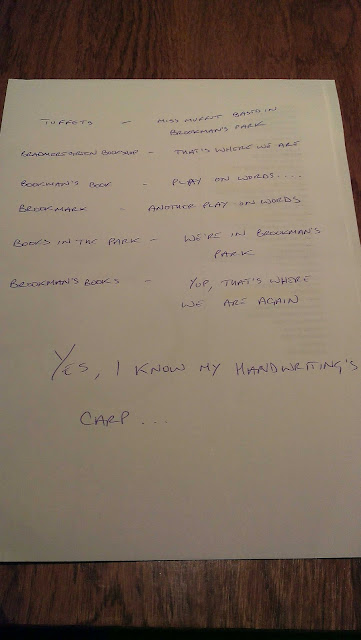 TUFFETS - MISS MUFFIT BASED IN
BROOKMAN'S PARK
BRADMOREGREEN BOOKSHOP - THAT'S WHERE WE ARE
BOOKMAN'S BOOK - PLAY ON WORDS....
BROOKMARK - ANOTHER PLAY ON WORDS
BOOKS IN THE PARK - WE'RE IN BROOKMAN'S
PARK
BROOKMAN'S BOOKS - YUP, THAT'S WHERE
WE ARE AGAIN
YES, I KNOW MY HANDWRITING'S
CARP...